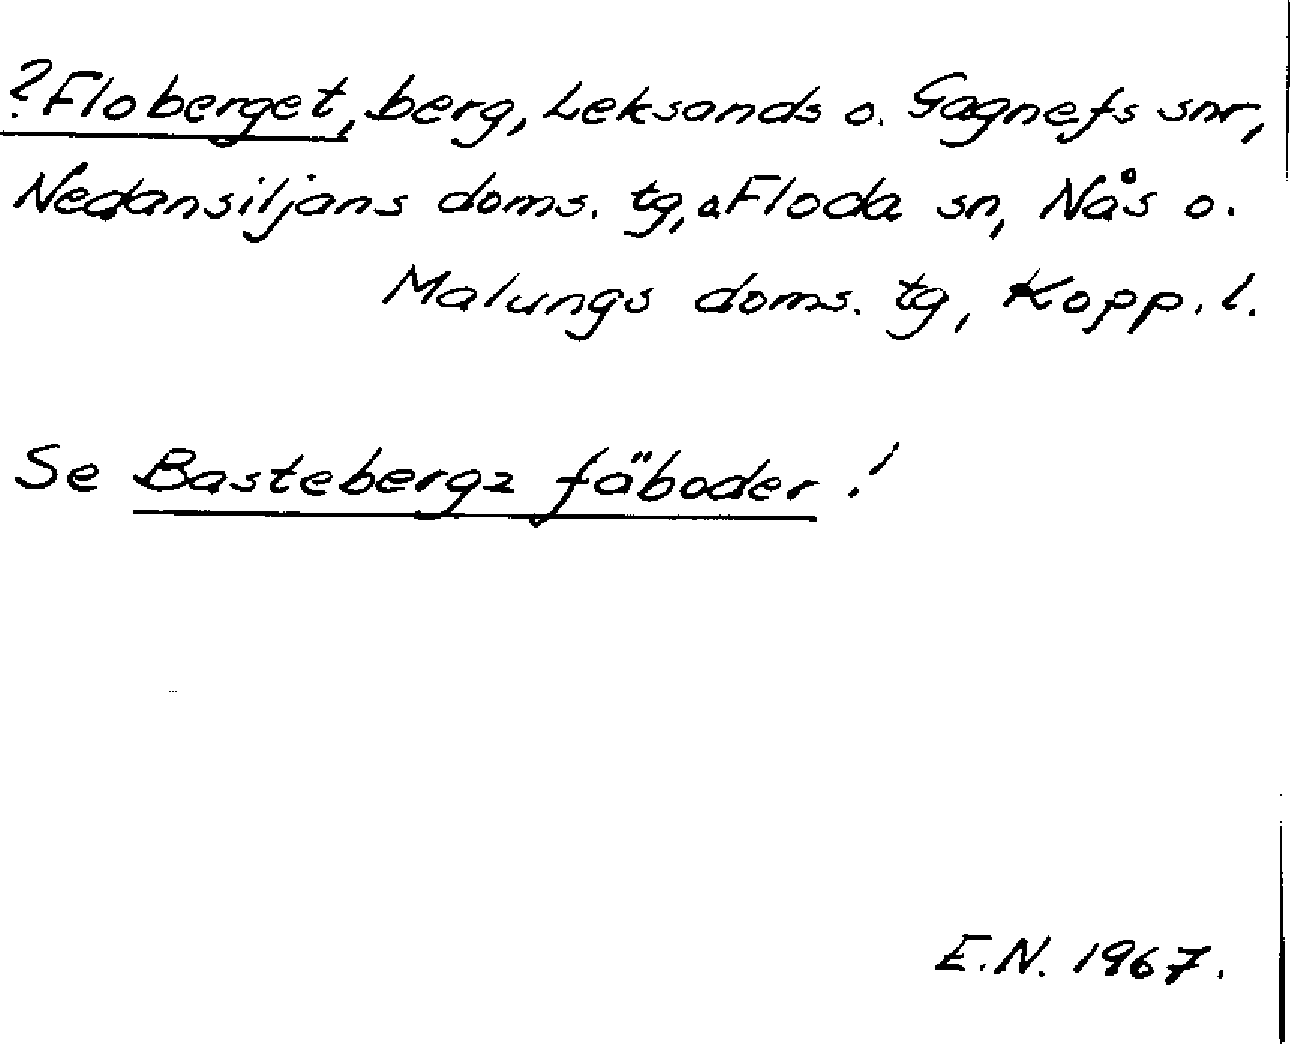 ?Floberget, berg, Leksands o. Gagnefs snr,
Nedansiljans doms. tg, o Floda sn, Nås o.
Malungs doms. tg, Kopp. l.
Se Bastebergs fäboder!
E.N. 1967.